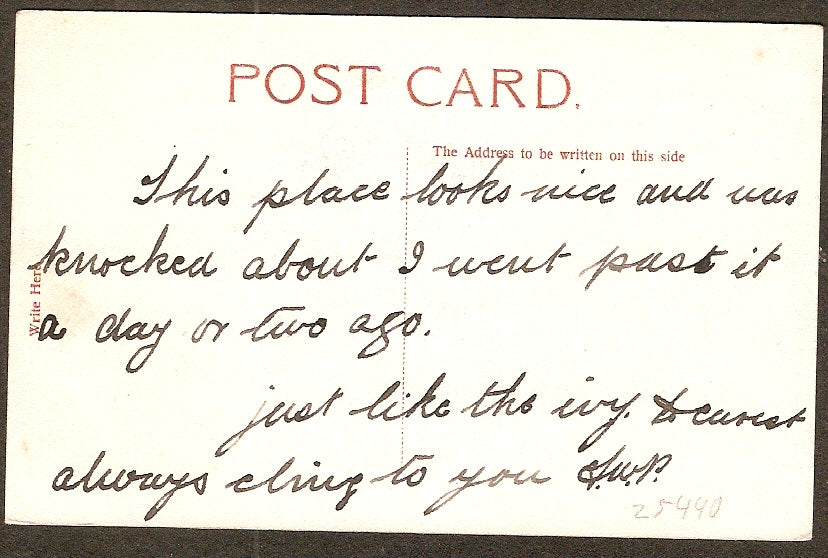 POST CARD.
The Address to be written on this side
Write Here
This place looks nice and was
knocked about I went past it
a day or two ago.
just like the ivy. Dearest
always cling to you
25440